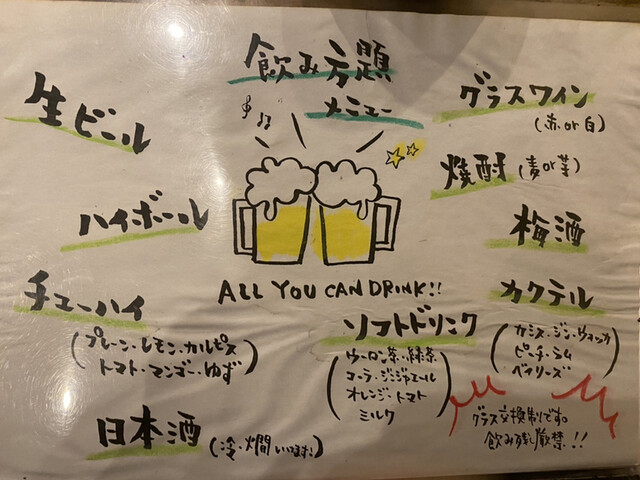 飲み方題
メニュー
生ビール
ハイボール
チューハイ
(プレーン・レモン・カルピス
トマト・マンゴー・ゆず)
日本酒(冷・燗いけます!)
ALL YOU CAN DRINK!!
ソフトドリンク
(ウーロン茶・緑茶
コーラ・ジンジャエール
オレンジ・トマト
ミルク)
グラスワイン
(赤or白)
焼酎(麦or芋)
梅酒
カクテル
(カシス・ジン・ウォッカ
ピーチ・ラム
ベイリーズ)
グラス交換制です。
飲み残し厳禁!!